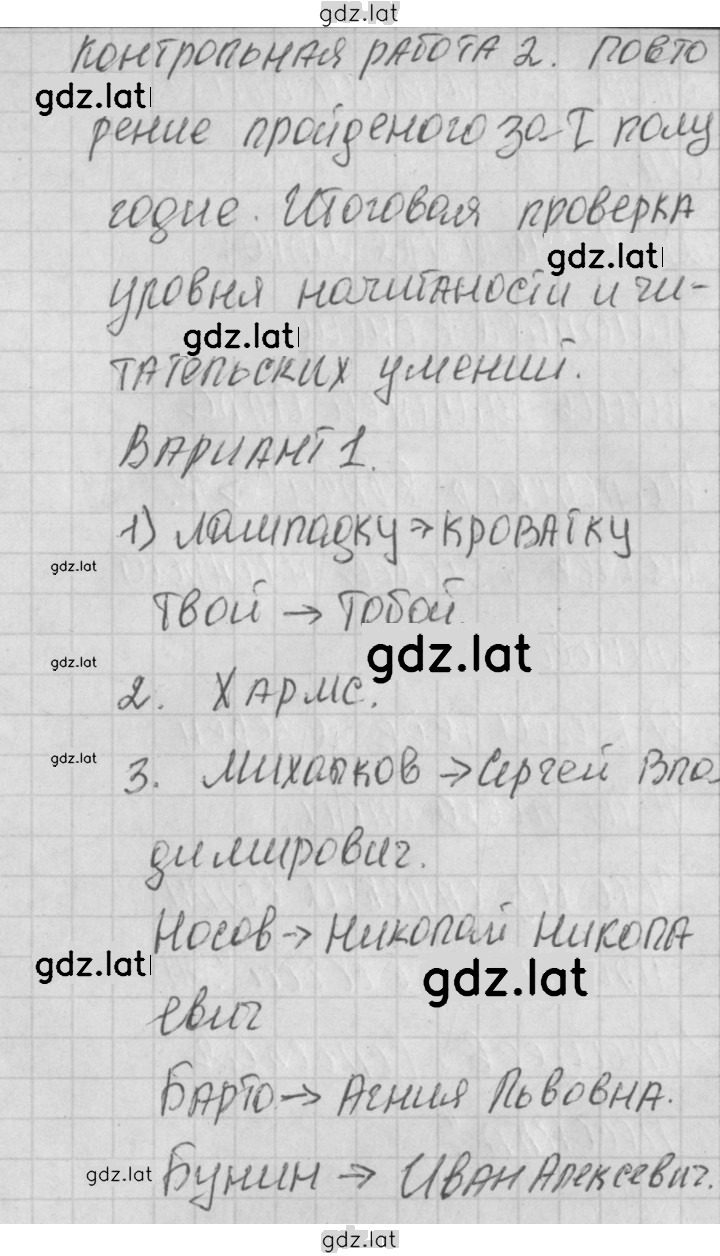 gdz.lat
Контрольная работа 2. Повто
gdz.lat
рение пройденого за I полу
годие. Итоговая проверка
gdz.lat
уровня начитаности и чи-
gdz.lat
тательских умений.
Вариант 1.
1) лампадку → кроватку
gdz.lat
Твой → Тобой.
gdz.lat
gdz.lat
2. Хармс.
gdz.lat
3. Михалков → Сергей Вла
димирович.
Носов → Николай Никола
gdz.lat
gdz.lat
евич
Барто → Агния Львовна.
gdz.lat
Бунин → Иван Алексевич.
gdz.lat